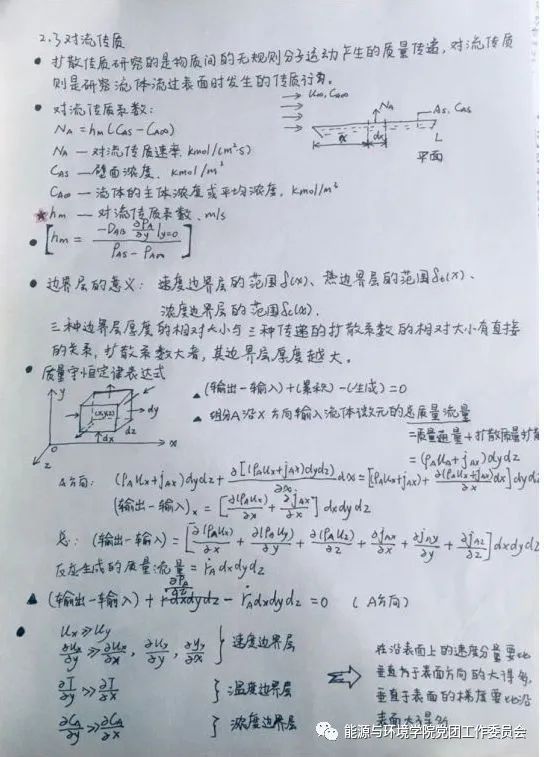 2.3 对流传质
• 扩散传质研究的是物质间的无规则分子运动产生的质量传递，对流传质
则是研究流体流过表面时发生的传质行为。
• 对流传质系数：
u∞, CA∞
NA
As, CAS
x
dx
L
平面
NA = hm (CAS − CA∞)
NA — 对流传质速率, kmol/(m²·s)
CAS — 壁面浓度, kmol/m³
CA∞ — 流体的主体浓度或平均浓度, kmol/m³
★ hm — 对流传质系数, m/s
• [hm = (−DAB ∂ρA/∂y |y=0) / (ρAS − ρA∞)]
• 边界层的意义： 速度边界层的范围 δ(x)、热边界层的范围 δt(x)、
浓度边界层的范围 δc(x).
三种边界层厚度的相对大小与三种传递的扩散系数的相对大小有直接
的关系，扩散系数大者，其边界层厚度越大。
• 质量守恒定律表达式
y
(x,y,z)
dy
dz
dx
0
x
z
▲ (输出−输入)+(累积)−(生成)=0
▲ 组分A沿X方向输入流体微元的总质量流量
=质量通量+扩散质量扩散
= (ρAux+jAx)dydz
x方向: (ρAux+jAx)dydz + ∂[(ρAux+jAx)dydz]/∂x dx = [(ρAux+jAx) + ∂(ρAux+jAx)/∂x dx] dydz
(输出−输入)x = [∂(ρAux)/∂x + ∂jAx/∂x] dxdydz
总: (输出−输入) = [∂(ρAux)/∂x + ∂(ρAuy)/∂y + ∂(ρAuz)/∂z + ∂jAx/∂x + ∂jAy/∂y + ∂jAz/∂z] dxdydz
反应生成的质量流量 = ṙA dxdydz
▲ (输出−输入) + ∂ρA/∂τ dxdydz − ṙA dxdydz = 0 (A方向)
• ux ≫ uy
∂ux/∂y ≫ ∂ux/∂x, ∂uy/∂y, ∂uy/∂x } 速度边界层
∂T/∂y ≫ ∂T/∂x } 温度边界层
∂CA/∂y ≫ ∂CA/∂x } 浓度边界层
⇒ 在沿表面上的速度分量要比
垂直于表面方向的大得多，
垂直于表面的梯度要比沿
表面大得多
能源与环境学院党团工作委员会